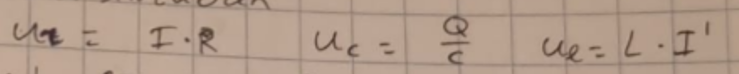 u_r = I·R    u_c = Q/C    u_l = L·I'